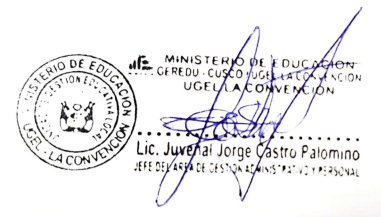 MINISTERIO DE EDUCACION
GEREDU - CUSCO - UGEL LA CONVENCION
UGEL LA CONVENCIÓN
MINISTERIO DE EDUCACION
GESTION EDUCATIVA LOCAL
UGEL - LA CONVENCION
Lic. Juvenal Jorge Castro Palomino
JEFE DEL AREA DE GESTION ADMINISTRATIVO Y PERSONAL